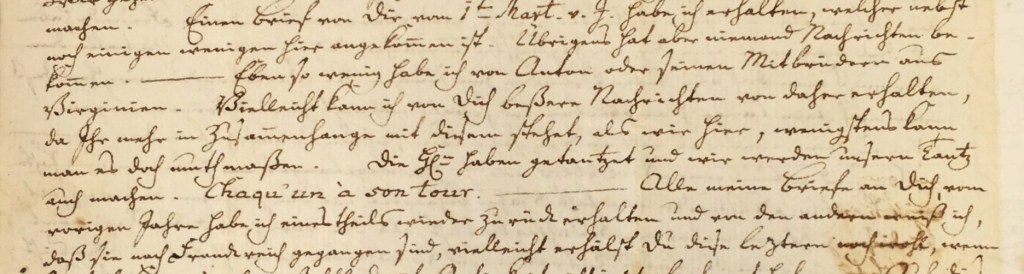 machen. Einen Brief von Dir vom 1ten Mart. v. J. habe ich erhalten, welcher nebst
noch einigen wenigen hier angekommen ist. Übrigens hat aber niemand Nachrichten be-
kommen. — Eben so wenig habe ich von Anton oder seinen Mitbrüdern aus
Virginien. Vielleicht kann ich von Dich beßere Nachrichten von daher erhalten,
da Ihr mehr in Zusammenhange mit diesem stehet, als wir hier, wenigstens kann
man es doch muthmaßen. Die haben getantzet und wir werden unsern Tantz
auch machen. Chaqu'un à son tour. — Alle meine Briefe an Dich, vom
vorigen Jahre habe ich eines theils wieder zurück erhalten und von den andern weiß ich,
daß sie nach Franckreich gegangen sind, vielleicht erhälst Du diese leztern noch, wenn